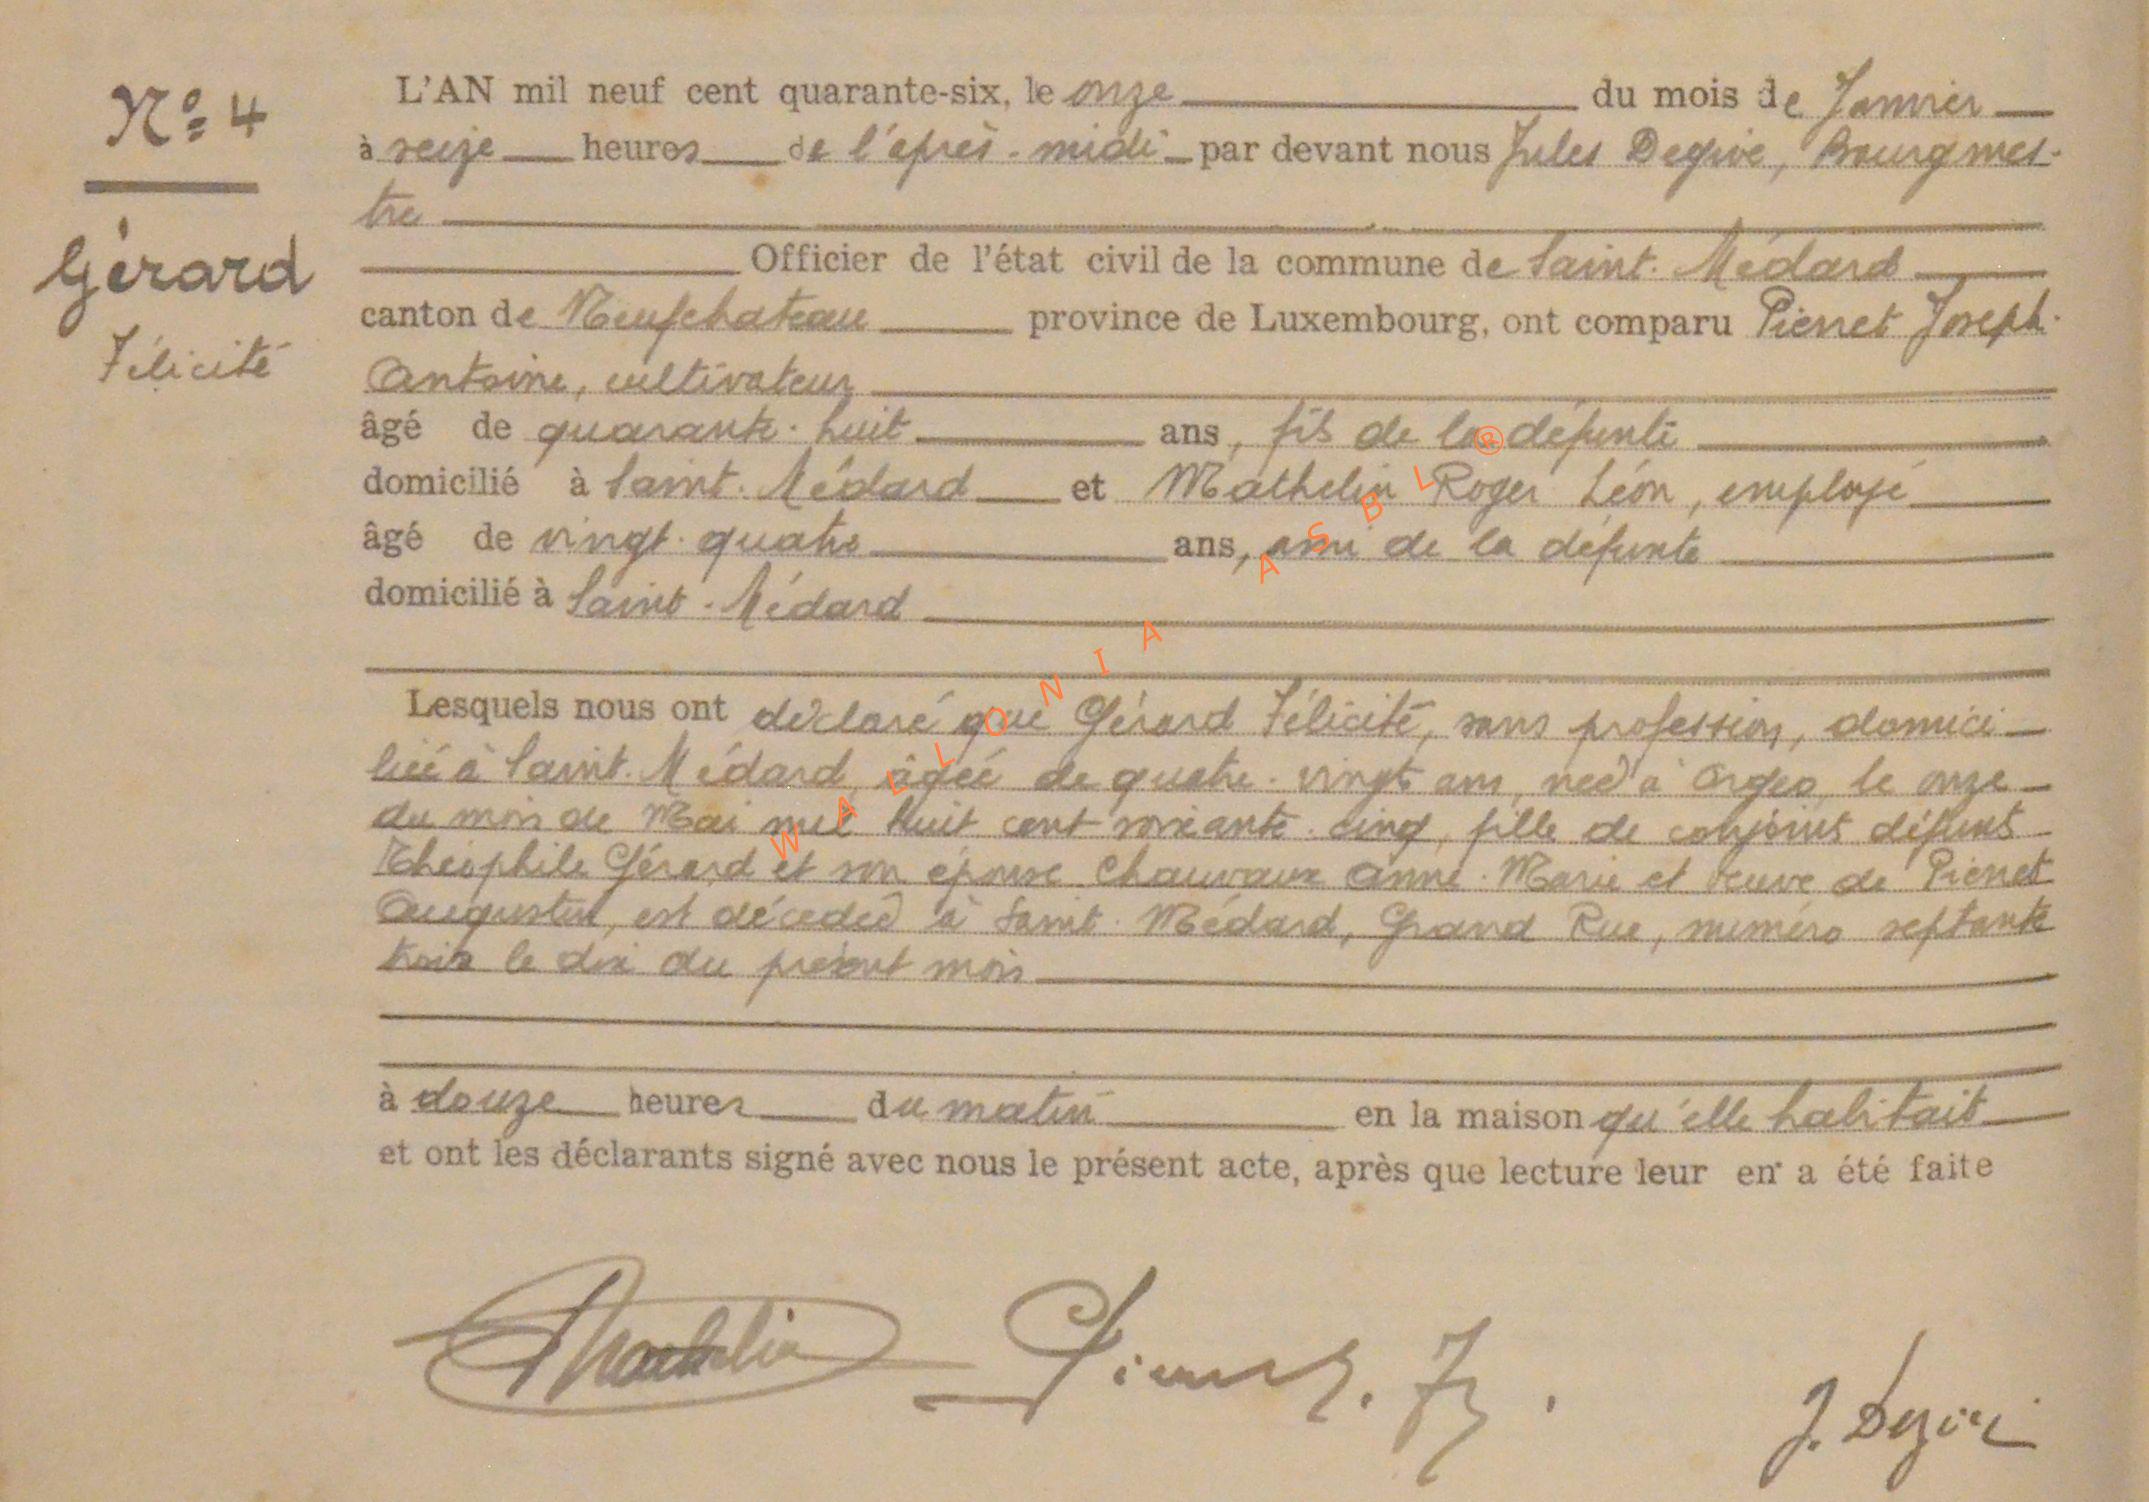 N° 4
Gérard
Félicité
L'AN mil neuf cent quarante-six, le onze du mois de Janvier
à seize heures de l'après-midi par devant nous Jules Degive, Bourgmes-
tre
Officier de l'état civil de la commune de Saint-Médard
canton de Neufchateau province de Luxembourg, ont comparu Pierret Joseph-
Antoine, cultivateur
âgé de quarante-huit ans, fils de la défunte
domicilié à Saint-Médard et Mathelin Roger Léon, employé
âgé de vingt-quatre ans, ami de la défunte
domicilié à Saint-Médard
Lesquels nous ont déclaré que Gérard Félicité, sans profession, domici-
liée à Saint-Médard, âgée de quatre-vingts ans, née à Orgeo, le onze
du mois de Mai mil huit cent soixante-cinq, fille de conjoints défunts
Théophile Gérard et son épouse Chauvaux Anne-Marie et veuve de Pierret
Augustin, est décédée à Saint-Médard, Grand Rue, numéro septante
trois le dix du présent mois
à douze heures du matin en la maison qu'elle habitait
et ont les déclarants signé avec nous le présent acte, après que lecture leur en a été faite
Mathelin Pierret. J. J. Degive
WALLONIA ASBL ®